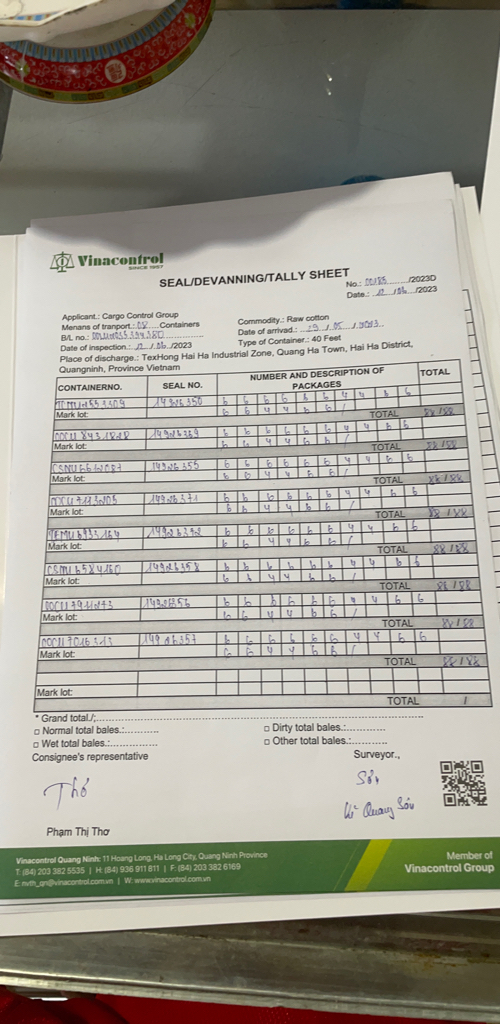 Vinacontrol
SINCE 1957
SEAL/DEVANNING/TALLY SHEET
No.: 00185 /2023D
Date.: 12 / 06 /2023
Applicant.: Cargo Control Group
Commodity.: Raw cotton
Menans of tranport.: 08 Containers
Date of arrivad.: 29 / 05 / 2023
B/L no.:
Type of Container.: 40 Feet
Date of inspection.: 12 / 06 /2023
Place of discharge.: TexHong Hai Ha Industrial Zone, Quang Ha Town, Hai Ha District,
Quangninh, Province Vietnam
CONTAINERNO. SEAL NO. NUMBER AND DESCRIPTION OF PACKAGES TOTAL
14926350 6 6 6 6 6 6 4 4 6 6
Mark lot: 6 6 4 4 6 6 /
TOTAL 88/88
14926369 6 6 6 6 6 6 4 4 6 6
Mark lot: 6 6 4 4 6 6 /
TOTAL 88/88
14926355 6 6 6 6 6 6 4 4 6 6
Mark lot: 6 6 4 4 6 6 /
TOTAL 88/88
14926371 6 6 6 6 6 6 4 4 6 6
Mark lot: 6 6 4 4 6 6 /
TOTAL 88/88
6 6 6 6 6 6 4 4 6 6
Mark lot: 6 6 4 4 6 6 /
TOTAL 88/88
CSMU6584160 14926358 6 6 6 6 6 6 4 4 6 6
Mark lot: 6 6 4 4 6 6 /
TOTAL 88/88
6 6 6 6 6 6 4 4 6 6
Mark lot: 6 6 4 4 6 6 /
TOTAL 88/88
OOCU7016313 14926357 6 6 6 6 6 6 4 4 6 6
Mark lot: 6 6 4 4 6 6 /
TOTAL 88/88
Mark lot:
TOTAL /
* Grand total./:
□ Normal total bales.:
□ Dirty total bales.:
□ Wet total bales.:
□ Other total bales.:
Consignee's representative
Surveyor.,
Thơ
Phạm Thị Thơ
Vinacontrol Quang Ninh: 11 Hoang Long, Ha Long City, Quang Ninh Province
T: (84) 203 382 5535 | H: (84) 936 911 811 | F: (84) 203 382 6169
E: nvth_qn@vinacontrol.com.vn | W: www.vinacontrol.com.vn
Member of
Vinacontrol Group